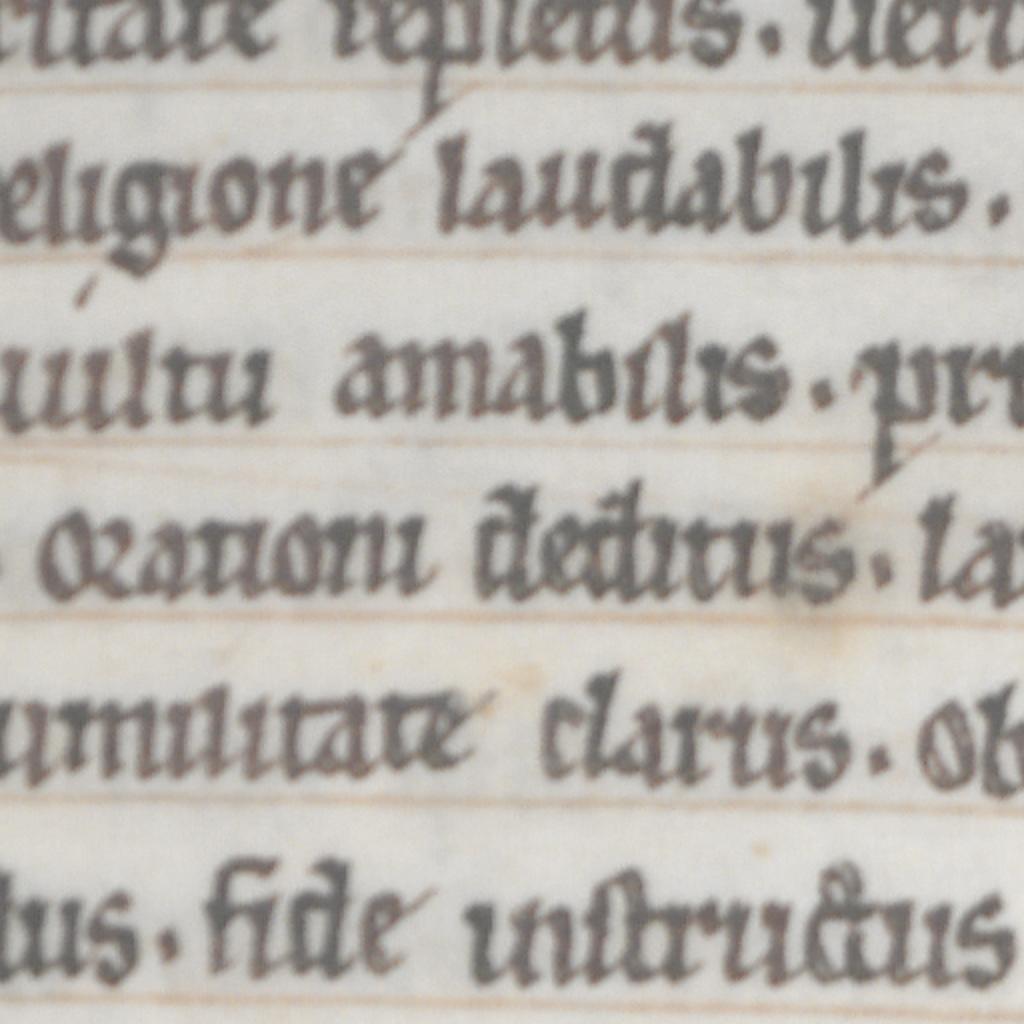 ritate repletus. ueri
eligione laudabilis.
uultu amabilis. pru
orationi deditus. la
umilitate clarus. ob
tus. fide instructus